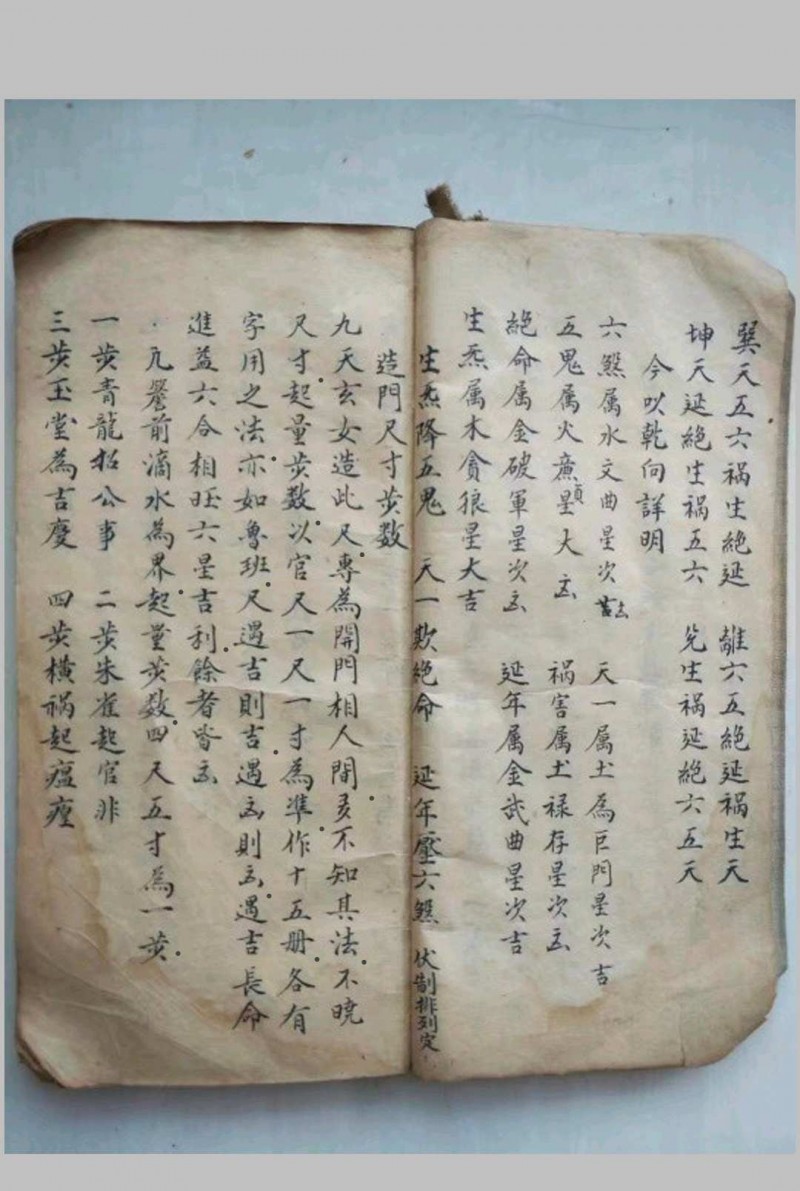 巽天五六祸生絶延　離六五絶延祸生天
坤天延絶生祸五六　兑生祸延絶六五天
今以乾向詳明
六煞属水文曲星次凶　天一属土為巨門星次吉
五鬼属火亷貞星大凶　祸害属土禄存星次凶
絶命属金破軍星次凶　延年属金武曲星次吉
生炁属木貪狼星大吉
生炁降五鬼　天一欺絶命　延年壓六煞　伏制排列定
造門尺寸步数
九天玄女造此尺專為開門相人間多不知其法不曉
尺寸起量步数以官尺一尺一寸為準作十五册各有
字用之法亦如魯班尺遇吉則吉遇凶則凶遇吉長命
進益六合相旺六星吉利餘者皆凶
凢簷前滴水為界起量步数四尺五寸為一步
一步青龍招公事　二步朱雀起官非
三步玉堂為吉慶　四步橫祸起瘟𤶸